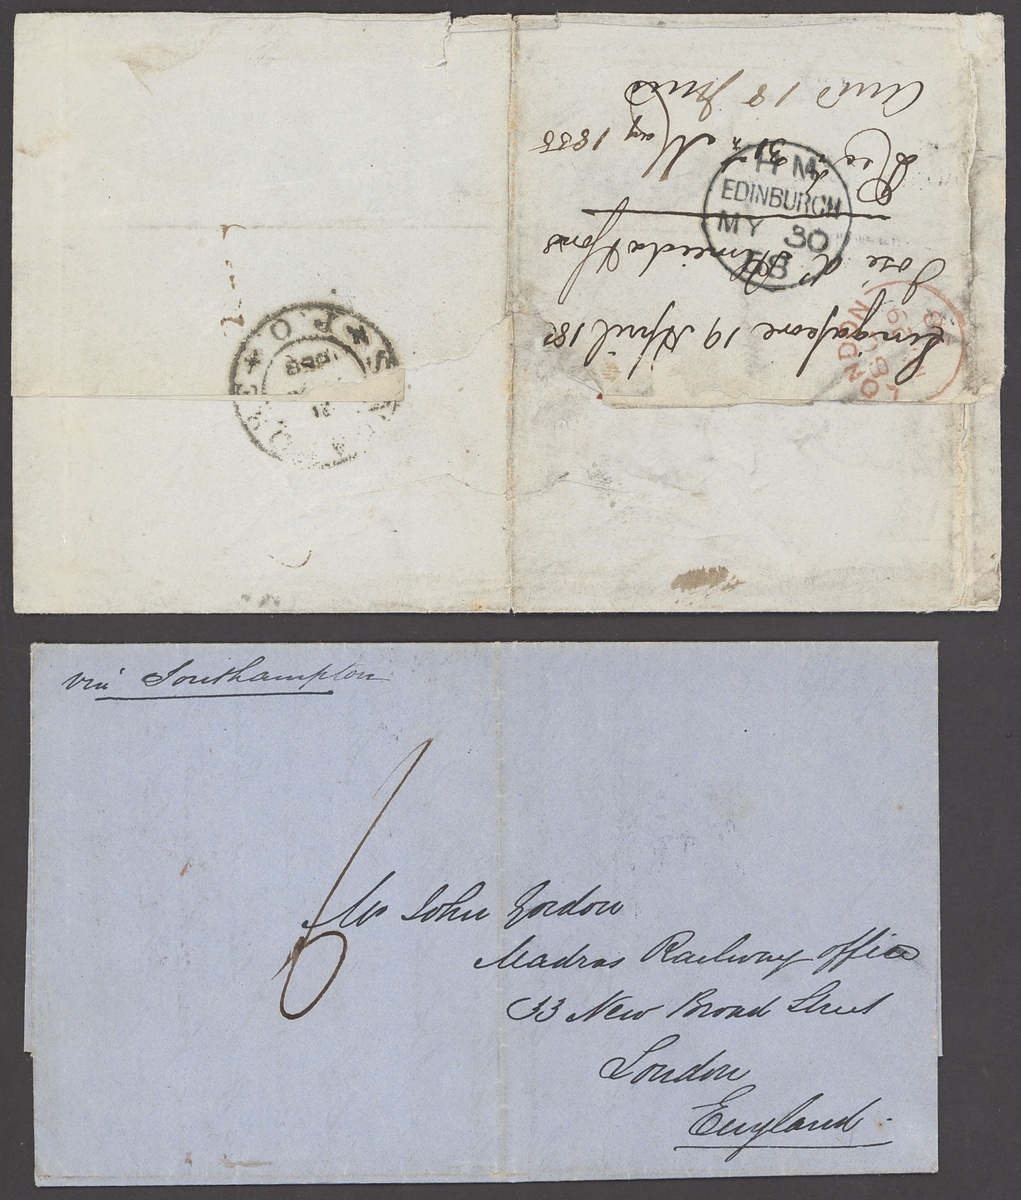 Singapore 19 April 18
Jose d'Almeida & Sons
Rec 31 May 1858
Ans 18 June
H M
EDINBURGH
MY 30
58
LONDON
P.O
via Southampton
6
Mr John Gordon
Madras Railway office
33 New Broad Street
London
England